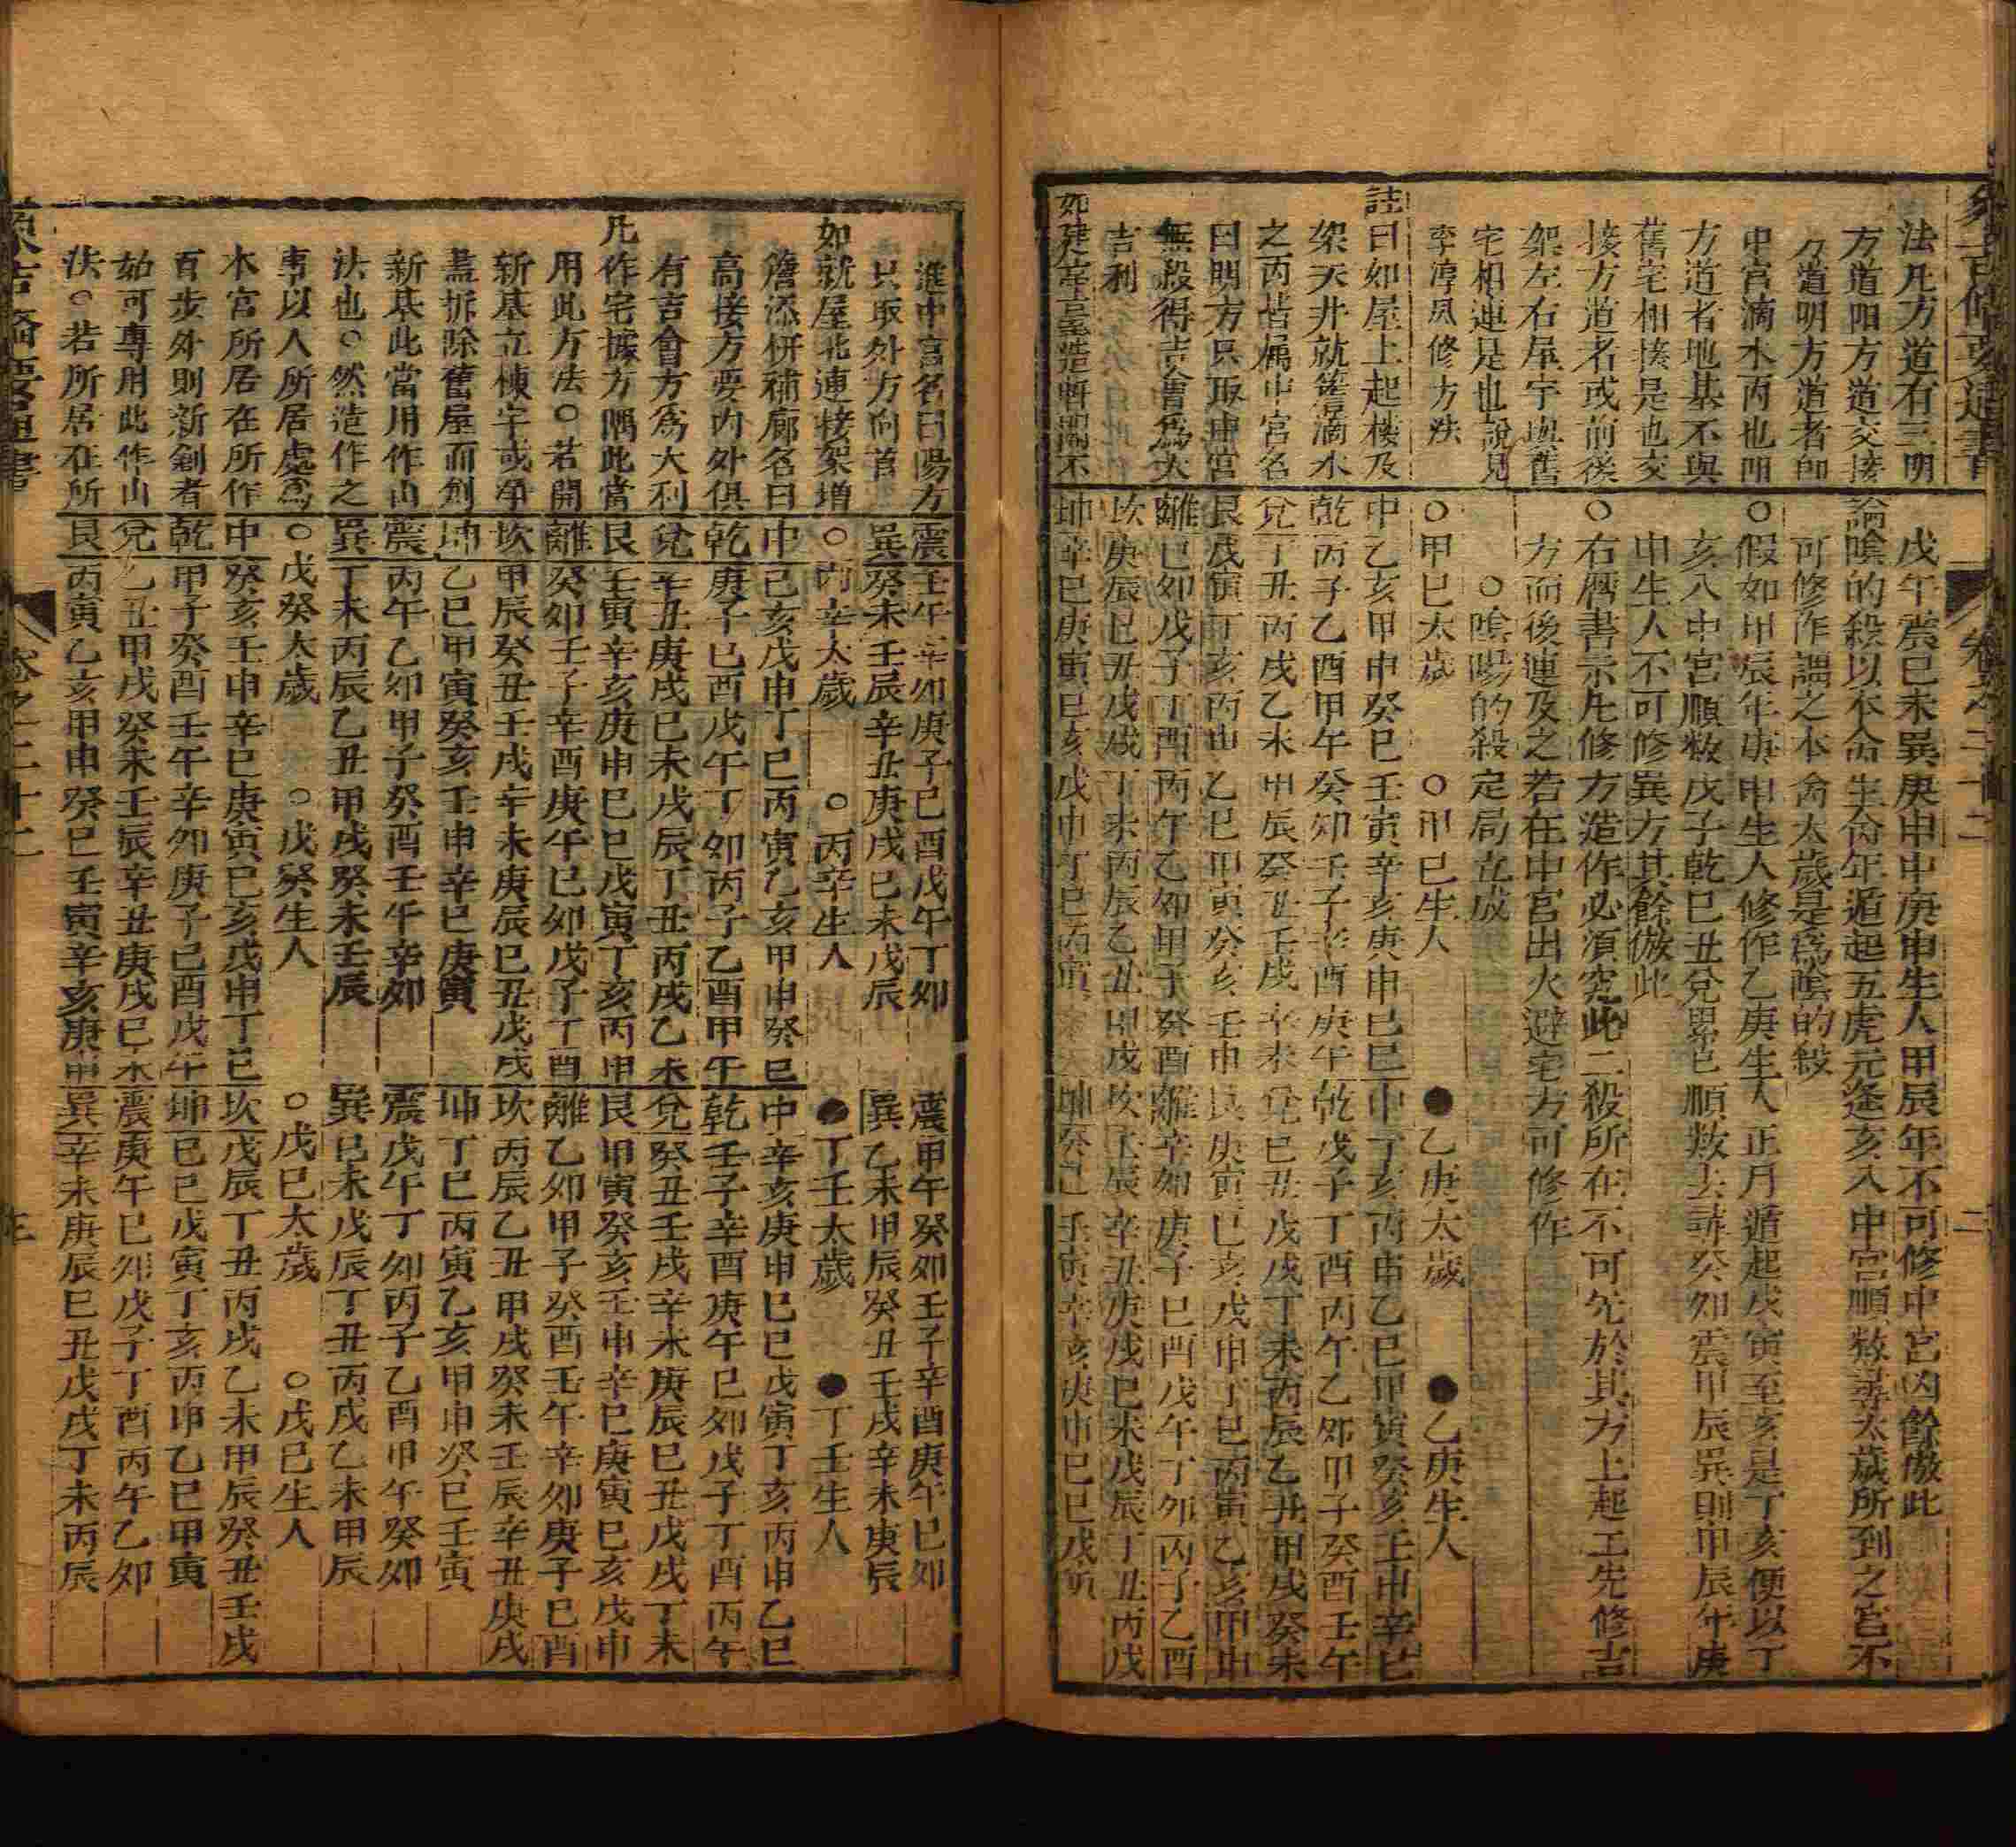 象吉備要通書
卷之二十二
二
法凡方道有三明
方道阳方道交接
方道明方道者即
中宮滴水內也阳
方道者地基不與
舊宅相接是也交
接方道者或前後
架左右屋宇與舊
宅相連是也說見
李淳風修方法
註曰如屋上起楼及
架天井就簷滴水
之內皆屬中宮名
曰明方只取中宮
無殺得吉會爲大
吉利
如建亭臺造軒閣不
戊午震巳未巽庚申中庚申生人甲辰年不可修中宮內餘倣此
論陰的殺以本命生人年遁起五虎元逢亥入中宮順数尋太歲所到之宮不
可修作謂之本命太歲是爲陰的殺
○假如甲辰年庚申生人修作乙庚生人正月遁起戊寅至亥是丁亥便以丁
亥入中宮順数戊子乾巳丑兌累已順数去尋癸卯震甲辰巽則甲辰年庚
申生人不可修巽方其餘倣此
○右曆書示凡修方造作必須究此二殺所在不可先於其方上起工先修吉
方而後連及之若在中宮出火避宅方可修作
○陰陽的殺定局立成
○甲巳太歲 ○甲巳生人 ●乙庚太歲 ●乙庚生人
中乙亥甲申癸巳壬寅辛亥庚申巳巳 中丁亥丙申乙巳甲寅癸亥壬申辛巳
乾丙子乙酉甲午癸卯壬子辛酉庚午 乾戊子丁酉丙午乙卯甲子癸酉壬午
兌丁丑丙戌乙未甲辰癸丑壬戌辛未 兌巳丑戊戌丁未丙辰乙丑甲戌癸未
艮戊寅丁亥丙申乙巳甲寅癸亥壬申 艮庚寅巳亥戊申丁巳丙寅乙亥甲申
離巳卯戊子丁酉丙午乙卯甲子癸酉 離辛卯庚子巳酉戊午丁卯丙子乙酉
坎庚辰巳丑戊戌丁未丙辰乙丑甲戌 坎壬辰辛丑庚戌巳未戊辰丁丑丙戌
坤辛巳庚寅巳亥戊申丁巳丙寅 坤癸巳壬寅辛亥庚申巳巳戊寅
進中宮名曰陽方
只取外方向首
如就屋北連接架增
簷添併補廊名曰
高接方要內外俱
有吉會方爲大利
凡作宅據方隅此當
用此方法○若開
新基立棟宇或净
盖拆除舊屋而創
新基此當用作山
法也○然造作之
事以人所居處爲
本宮所居在所作
百步外則新創者
始可專用此作山
法○若所居在所
震壬午辛卯庚子巳酉戊午丁卯 震甲午癸卯壬子辛酉庚午巳卯
巽癸未壬辰辛丑庚戌巳未戊辰 巽乙未甲辰癸丑壬戌辛未庚辰
○丙辛太歲 ○丙辛生人 ●丁壬太歲 ●丁壬生人
中巳亥戊申丁巳丙寅乙亥甲申癸巳 中辛亥庚申巳巳戊寅丁亥丙申乙巳
乾庚子巳酉戊午丁卯丙子乙酉甲午 乾壬子辛酉庚午巳卯戊子丁酉丙午
兌辛丑庚戌巳未戊辰丁丑丙戌乙未 兌癸丑壬戌辛未庚辰巳丑戊戌丁未
艮壬寅辛亥庚申巳巳戊寅丁亥丙申 艮甲寅癸亥壬申辛巳庚寅巳亥戊申
離癸卯壬子辛酉庚午巳卯戊子丁酉 離乙卯甲子癸酉壬午辛卯庚子巳酉
坎甲辰癸丑壬戌辛未庚辰巳丑戊戌 坎丙辰乙丑甲戌癸未壬辰辛丑庚戌
坤乙巳甲寅癸亥壬申辛巳庚寅 坤丁巳丙寅乙亥甲申癸巳壬寅
震丙午乙卯甲子癸酉壬午辛卯 震戊午丁卯丙子乙酉甲午癸卯
巽丁未丙辰乙丑甲戌癸未壬辰 巽巳未戊辰丁丑丙戌乙未甲辰
○戊癸太歲 ○戊癸生人 ○戊巳太歲 ○戊巳生人
中癸亥壬申辛巳庚寅巳亥戊申丁巳 坎戊辰丁丑丙戌乙未甲辰癸丑壬戌
乾甲子癸酉壬午辛卯庚子巳酉戊午 坤巳巳戊寅丁亥丙申乙巳甲寅
兌乙丑甲戌癸未壬辰辛丑庚戌巳未 震庚午巳卯戊子丁酉丙午乙卯
艮丙寅乙亥甲申癸巳壬寅辛亥庚申 巽辛未庚辰巳丑戊戌丁未丙辰
象吉備要通書
卷之二十二